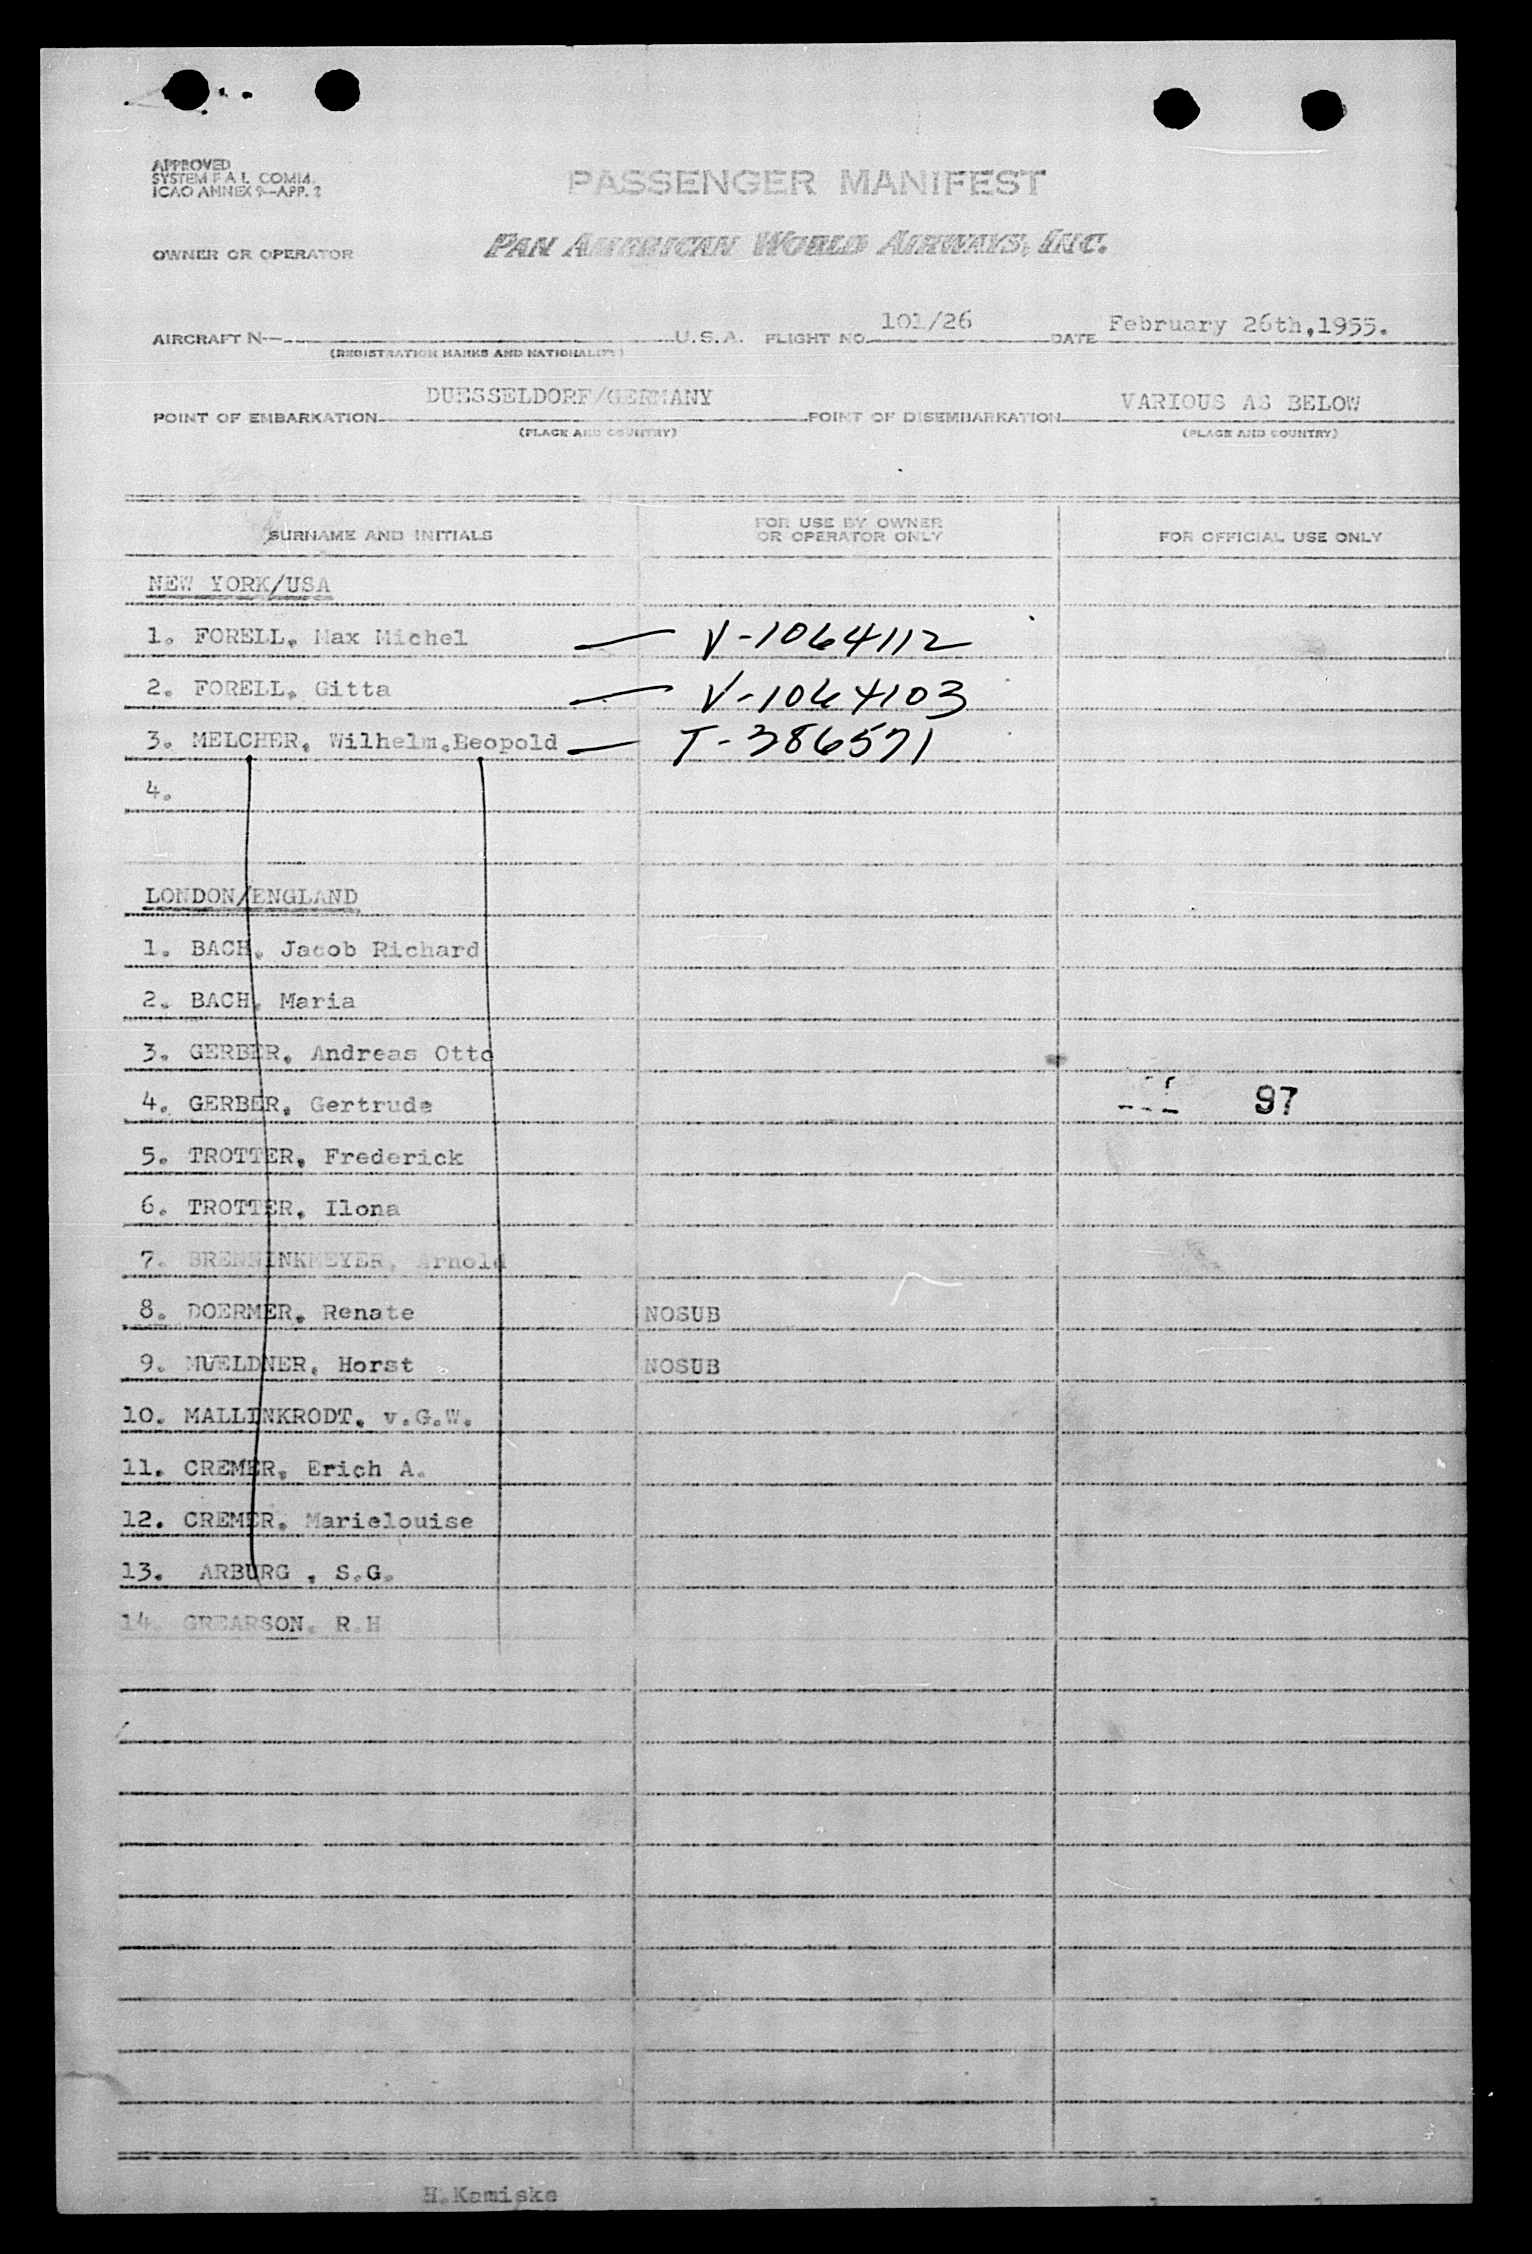 APPROVED
SYSTEM F.A.L. COMM.
ICAO ANNEX 9—APP. 2
PASSENGER MANIFEST
OWNER OR OPERATOR PAN AMERICAN WORLD AIRWAYS, INC.
AIRCRAFT N— U.S.A. FLIGHT NO. 101/26 DATE February 26th,1955.
(REGISTRATION MARKS AND NATIONALITY)
POINT OF EMBARKATION DUESSELDORF/GERMANY POINT OF DISEMBARKATION VARIOUS AS BELOW
(PLACE AND COUNTRY) (PLACE AND COUNTRY)
SURNAME AND INITIALS FOR USE BY OWNER OR OPERATOR ONLY FOR OFFICIAL USE ONLY
NEW YORK/USA
1. FORELL, Max Michel — V-1064112
2. FORELL, Gitta — V-1064103
3. MELCHER, Wilhelm.Beopold — T-386571
4.
LONDON/ENGLAND
1. BACH, Jacob Richard
2. BACH, Maria
3. GERBER, Andreas Otto
4. GERBER, Gertrude 97
5. TROTTER, Frederick
6. TROTTER, Ilona
7. BRENNINKMEYER, Arnold
8. DOERMER, Renate NOSUB
9. MUELDNER, Horst NOSUB
10. MALLINKRODT, v.G.W.
11. CREMER, Erich A.
12. CREMER, Marielouise
13. ARBURG , S.G.
14. GREARSON, R.H
H.Kamiske